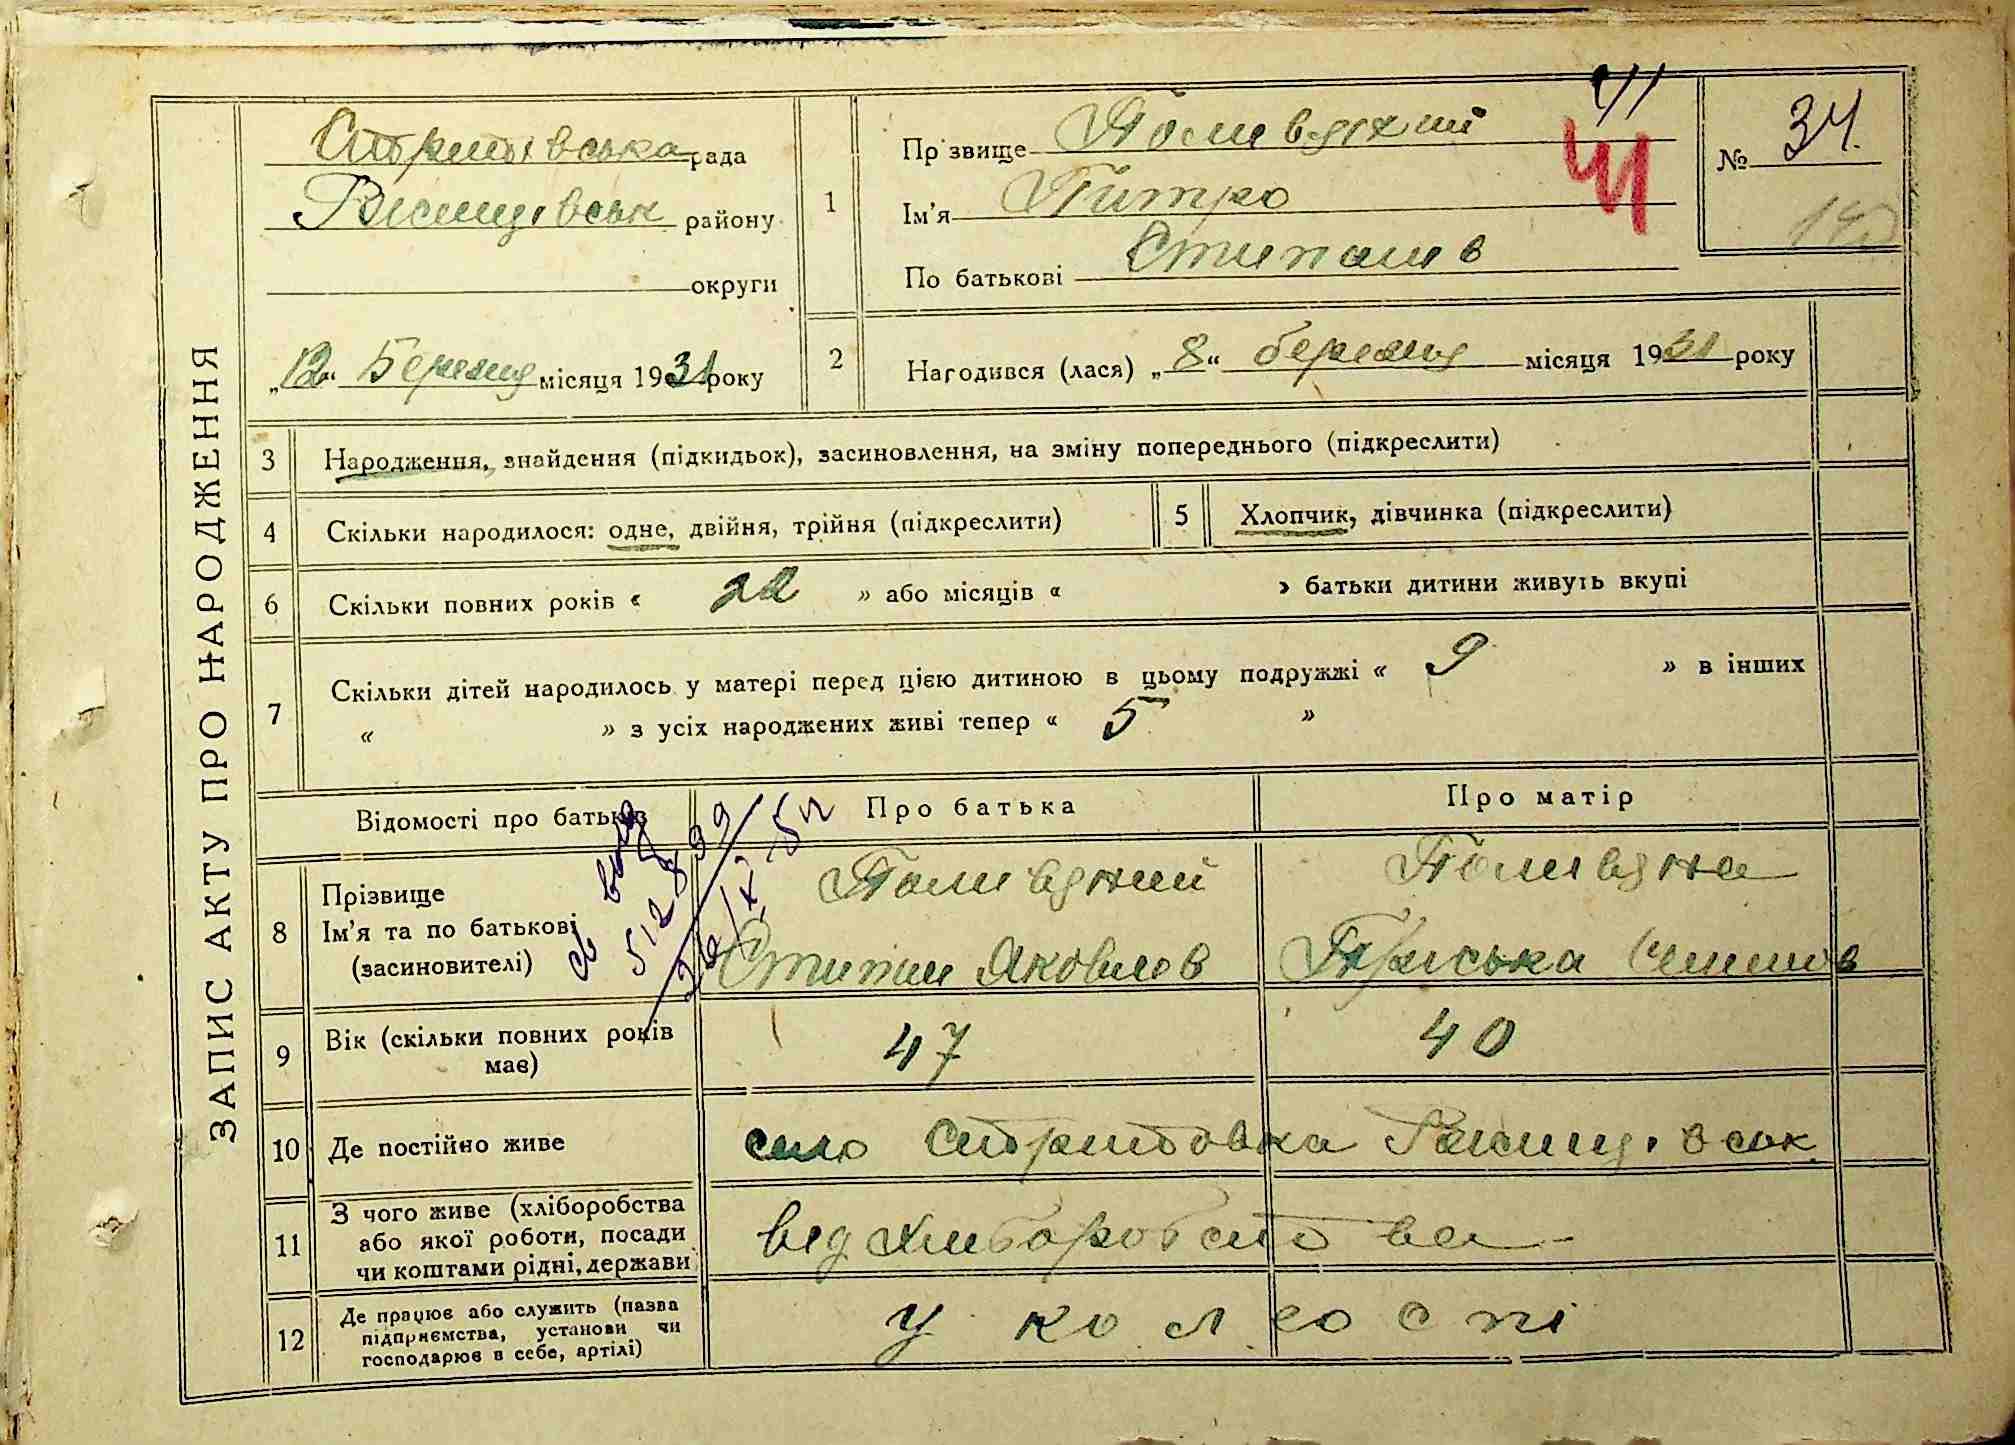 ЗАПИС АКТУ ПРО НАРОДЖЕННЯ
Стритівська рада
району
округи
„12“ Березня місяця 1931 року
1
Прізвище
Ім'я Питро
По батькові Стипанів
№ 34.
41
41
140
2
Народився (лася) „8“ березня місяця 1931 року
3 Народження, знайдення (підкидьок), засиновлення, на зміну попереднього (підкреслити)
4 Скільки народилося: одне, двійня, трійня (підкреслити)
5 Хлопчик, дівчинка (підкреслити)
6 Скільки повних років « 22 » або місяців « » батьки дитини живуть вкупі
7 Скільки дітей народилось у матері перед цією дитиною в цьому подружжі « 9 » в інших
« » з усіх народжених живі тепер « 5 »
Відомості про батьків
Про батька
Про матір
8 Прізвище
Ім'я та по батькові
(засиновителі)
Поливяний
Стипан Яковлев
Поливяна
Пріська
9 Вік (скільки повних років
має)
47
40
10 Де постійно живе
село Стритовка
11 З чого живе (хліборобства
або якої роботи, посади
чи коштами рідні, держави
від хліборобства
12 Де працює або служить (назва
підприємства, установи чи
господарює в себе, артілі)
у колгоспі